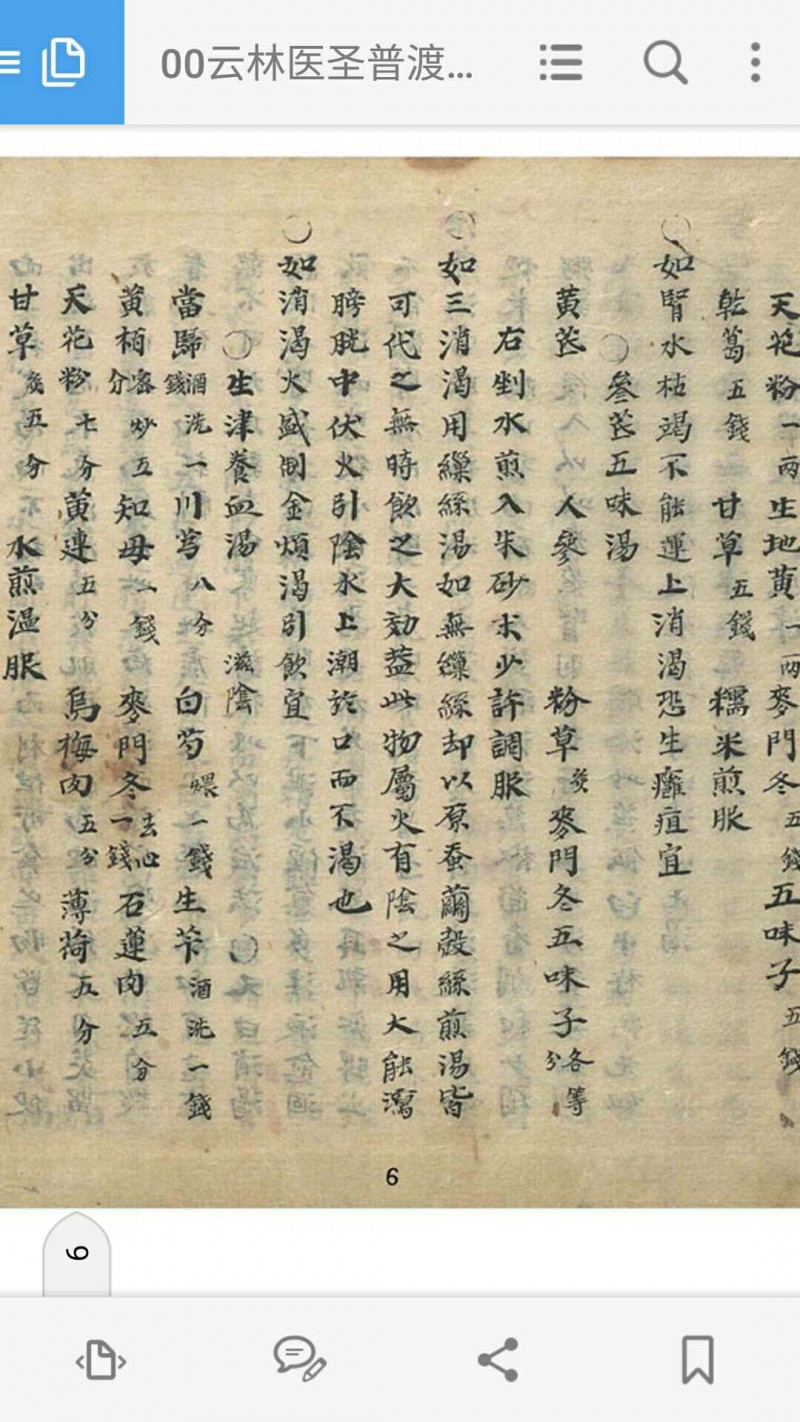 00云林医圣普渡...
天花粉一兩生地黃一兩麥門冬五錢五味子五錢
乾葛五錢 甘草五錢 糯米煎服
○如腎水枯竭不能運上消渴恐生癰疽宜
○參茋五味湯
黃茋 人參 粉草炙麥門冬五味子各等分
右剉水煎入朱砂末少許調服
○如三消渴用繅絲湯如無繅絲却以原蚕繭殼絲煎湯皆
可代之無時飲之大効葢此物屬火有陰之用大能瀉
膀胱中伏火引陰水上潮於口而不渴也
○如消渴火盛制金煩渴引飲宜
○生津養血湯 滋陰 ○
當歸酒洗一錢川芎八分 白芍煨一錢生芐酒洗一錢
黃栢蜜炒五分知母一錢 麥門冬去心一錢石蓮肉五分
天花粉七分黃連五分 烏梅肉五分 薄荷五分
甘草炙五分 水煎溫服
6
6